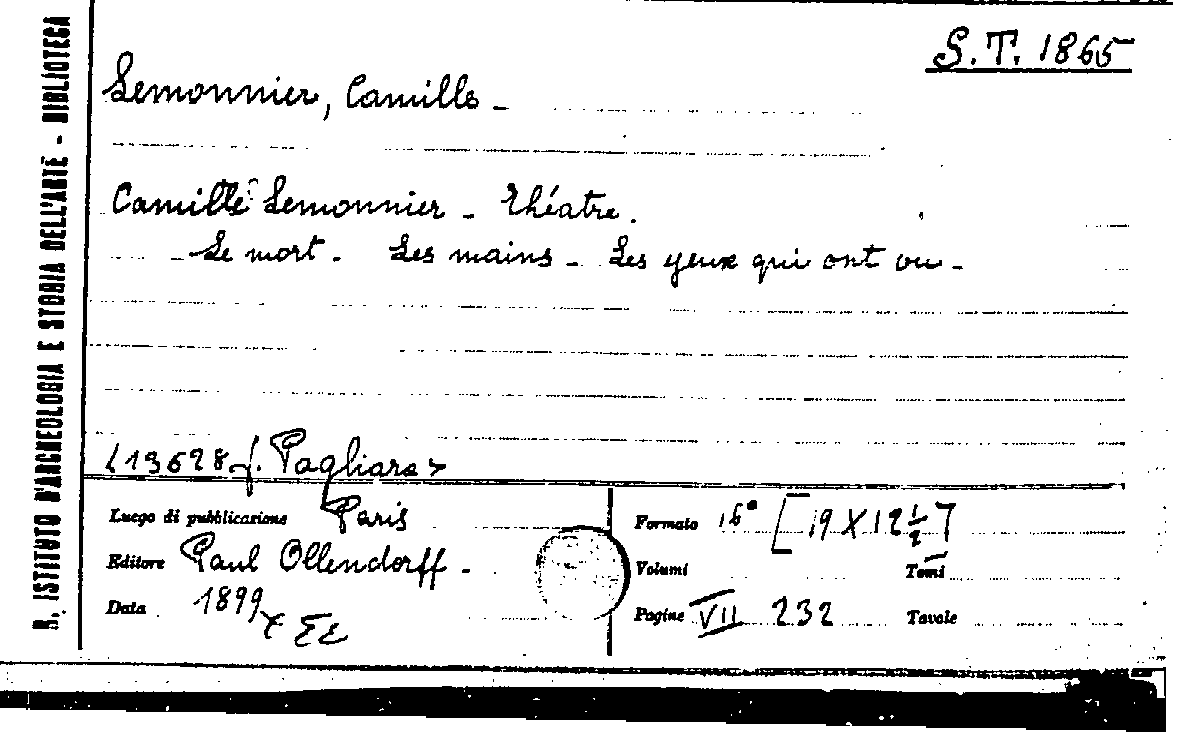 S.T. 1865
Lemonnier, Camille -
Camille Lemonnier - Théatre.
- Le mort - Les mains - Les yeux qui ont vu -
(13628 f. Pagliara)
Luogo di pubblicazione Paris
Editore Paul Ollendorff -
Data 1899
Formato 16° [19 X 12 ½]
Volumi
Tomi
Pagine VII 232
Tavole
R. ISTITUTO D'ARCHEOLOGIA E STORIA DELL'ARTE - BIBLIOTECA